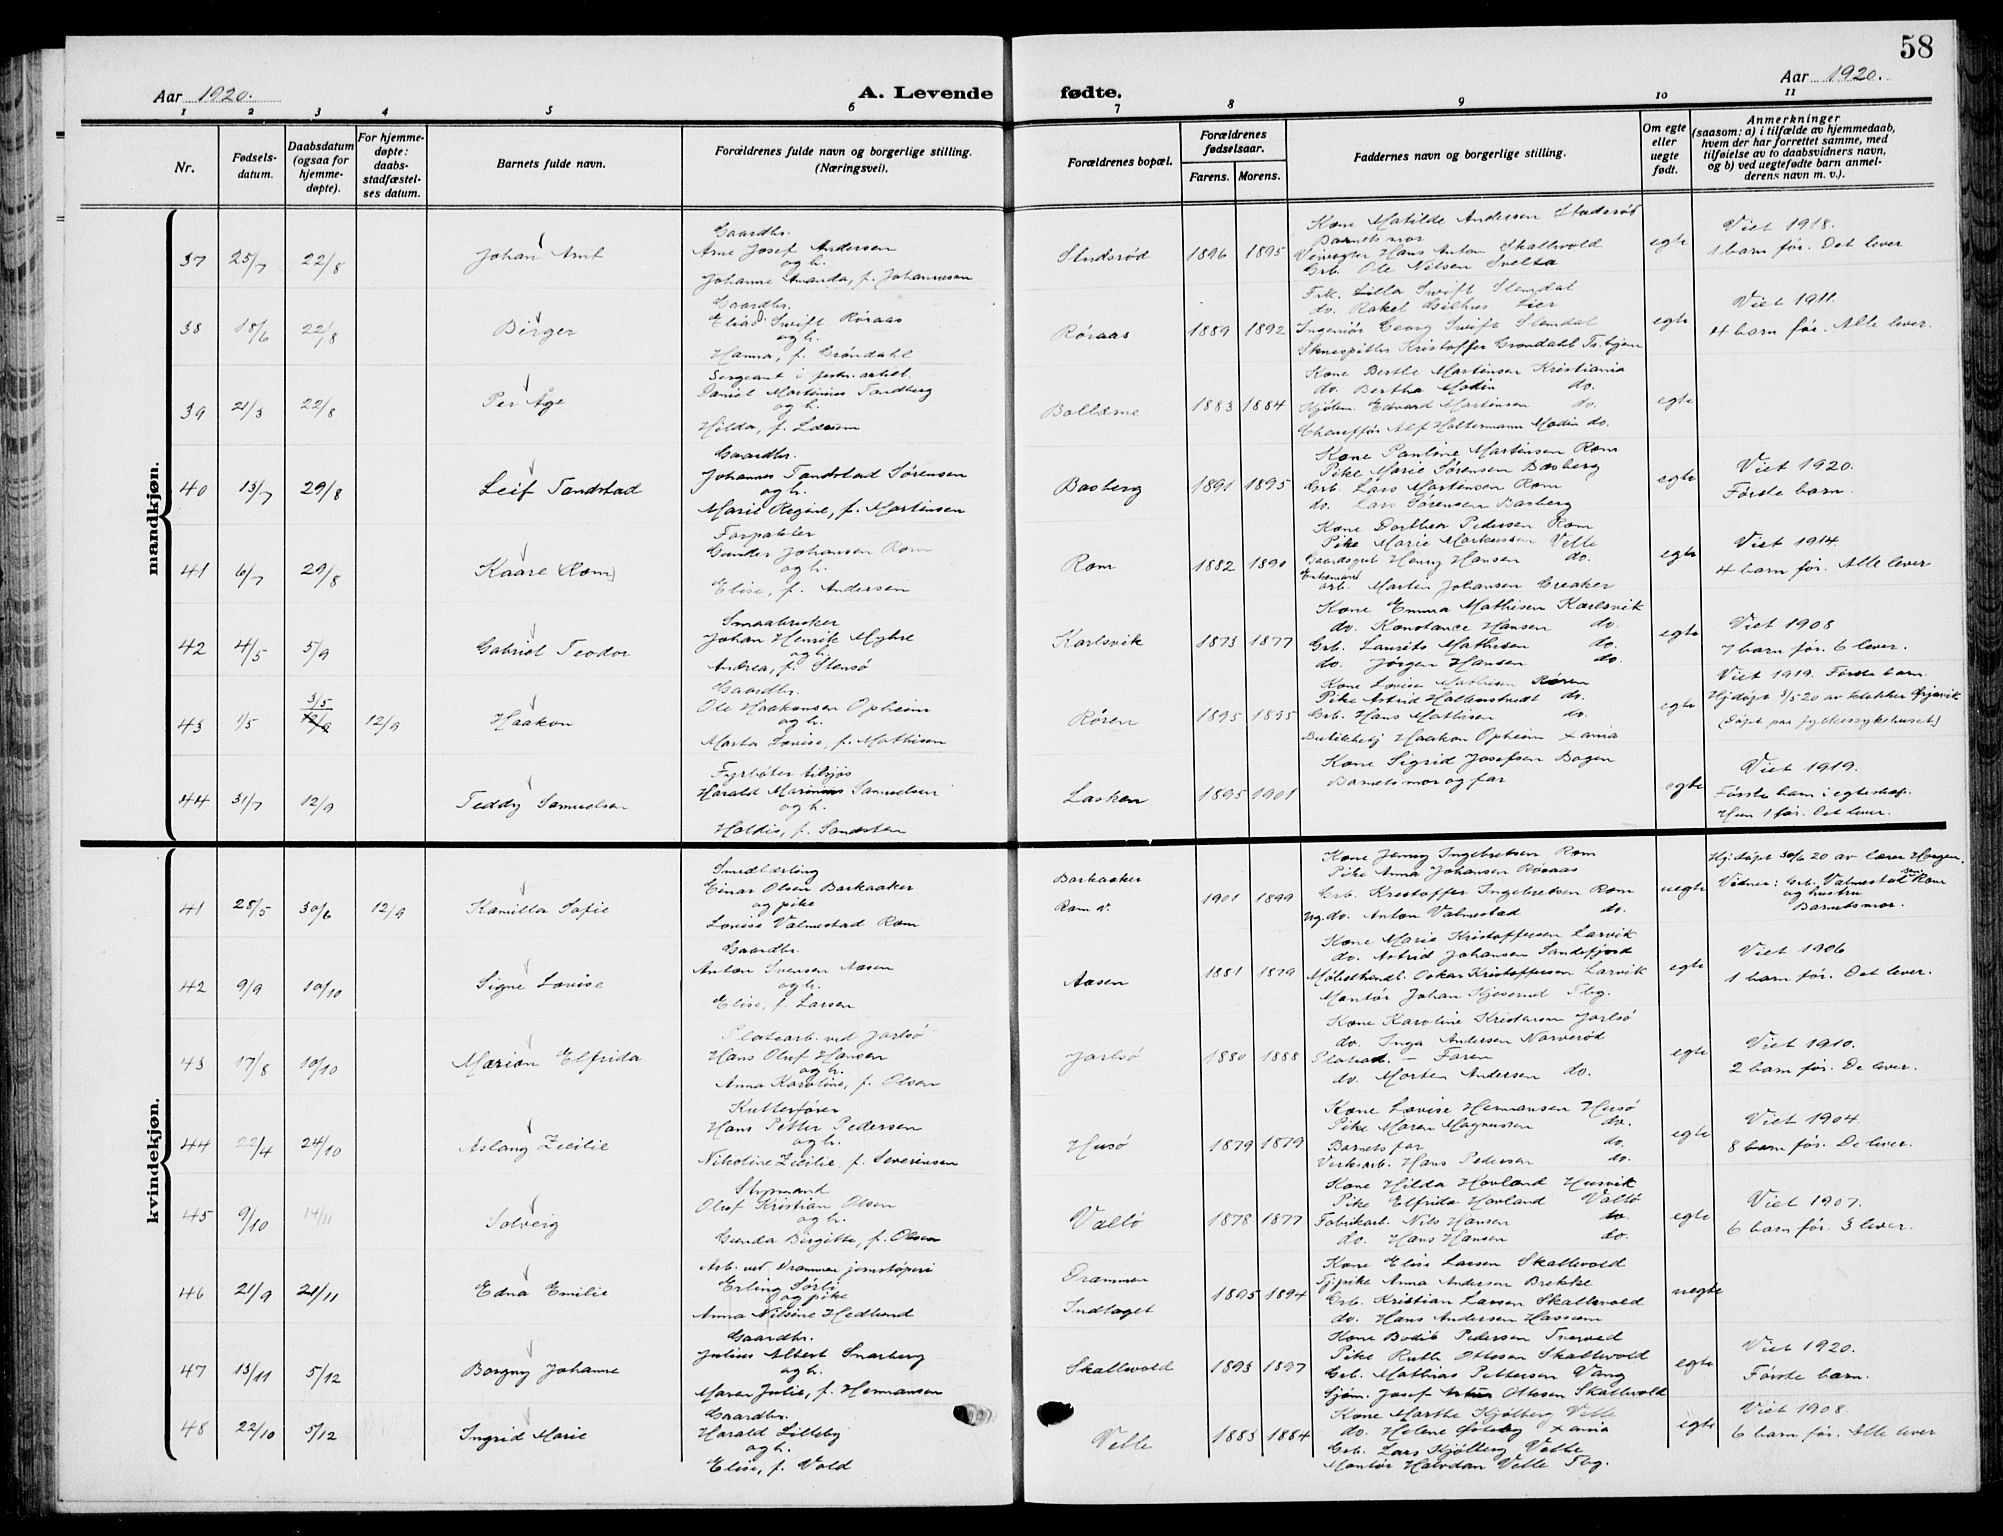 58
Aar 1920.
A. Levende fødte.
Aar 1920.
1 2 3 4 5 6 7 8 9 10 11
Nr.
Fødsels-
datum.
Daabsdatum
(ogsaa for
hjemme-
døpte).
For hjemme-
døpte:
daabs-
stadfæstel-
ses datum.
Barnets fulde navn.
Forældrenes fulde navn og borgerlige stilling.
(Næringsvei).
Forældrenes bopæl.
Forældrenes
fødselsaar.
Farens. Morens.
Faddernes navn og borgerlige stilling.
Om egte
eller
uegte
født.
Anmerkninger
(saasom: a) i tilfælde av hjemmedaab,
hvem der har forrettet samme, med
tilføielse av to daabsvidners navn,
og b) ved uegtefødte barn anmel-
derens navn m. v.).
mandkjøn.
37 25/7 22/8 Johan Arnt
Gaardbr.
Arne Josef Andersen
og h.
Johanne Amanda, f. Johannesen
1896 1895
Kone Matilde Andersen
Barnets mor
Hans Anton Skallevold
Grb. Ole Nilsen
egte
Viet 1918.
1 barn før. Det lever
38 18/6 22/8 Birger
Gaardbr.
Elias Swift Røraas
og h.
Hanna, f. Grøndahl
Røraas 1889 1892
Frk. Lilla Swift Slemdal
do. Rakel Lier
Ingeniør Georg Swift Slemdal
Kristoffer Grøndahl
egte
Viet 1911.
4 barn før. Alle lever.
39 21/3 22/8 Per Åge
Sergeant i
Daniel Martinius Tandberg
og h.
Hilda, f.
Bollærne 1883 1884
Kone Berthe Martinsen Kristiania
do. Bertha Modin do.
Edvard Martinsen do.
Chauffør Alf Haltermann Modin do.
egte
40 13/7 29/8 Leif Tandstad
Gaardbr.
Johannes Tandstad Sørensen
og h.
Marie Regine, f. Martinsen
Basberg 1891 1895
Kone Pauline Martinsen Rom
Pike Marie Sørensen Basberg
Grb. Lars Martinsen Rom
do. Lars Sørensen Basberg
egte
Viet 1920.
Første barn.
41 6/7 29/8 Kaare (Rom)
Forpakter
Gunder Johansen Rom
og h.
Elise, f. Andersen
Rom 1882 1890
Kone Dorthea Pedersen Rom
Pike Marie Markussen Velle
Gaardsgut Henry Hansen do.
Martin Johansen Greaker
egte
Viet 1914.
4 barn før. Alle lever
42 4/5 5/9 Gabriel Teodor
Smaabruker
Johan Henrik Myhre
og h.
Andrea, f. Stensø
Karlsvik 1873 1877
Kone Emma Mathisen Karlsvik
do. Konstance Hansen do.
Grb. Laurits Mathisen do.
do. Jørgen Hansen do.
egte
Viet 1908
7 barn før. 6 lever.
43 1/5 3/5 12/9 12/9 Haakon
Gaardbr.
Ole Haakonsen Opheim
og h.
Marta Lovise, f. Mathisen
Røren 1895 1895
Kone Lovise Mathisen Røren
Pike Astrid do.
Grb. Hans Mathisen do.
Haakon Opheim
egte
Viet 1919. Første barn.
Hj.døpt 3/5 20 av
(Døpt paa fylkessykehuset)
44 31/7 12/9 Teddy Samuelsen
Fyrbøter tilsjøs
Harald Marinius Samuelsen
og h.
Haldis, f. Sandsten
Lasken 1895 1901
Kone Sigrid Josefsen Bogen
Barnets mor og far
egte
Viet 1919.
Første barn i egteskap.
Hun 1 før. Det lever.
kvindekjøn.
41 28/5 30/6 12/9 Kamilla Sofie
Smedlærling
Einar Olsen Barkaaker
og pike
Lovise Valmestad Rom
Barkaaker
Rom v.
1901 1899
Kone Jenny Ingebretsen Rom
Pike Anna Johansen Røraas
Grb. Kristoffer Ingebretsen Rom
Ug. do. Anton Valmestad do.
uegte
Hj.døpt 30/6 20 av lærer Horgen.
Vidner: Grb. Valmestad Rom
og hustru
Barnets mor.
42 9/9 10/10 Signe Lovise
Gaardbr.
Anton Svensen Aasen
og h.
Elise, f. Larsen
Aasen 1881 1879
Kone Marie Kristoffersen Larvik
do. Astrid Johansen Sandefjord
Møbelhandl. Oskar Kristoffersen Larvik
Montør Johan Tbg.
egte
Viet 1906
1 barn før. Det lever.
43 17/8 10/10 Marion Elfrida
Platearb. ved Jarlsø
Hans Oluf Hansen
og h.
Anna Karoline, f. Olsen
Jarlsø 1880 1888
Kone Karoline Kristensen Jarlsø
do. Inga Andersen Narverød
Platearb. – Faren
do. Morten Andersen do.
egte
Viet 1910.
2 barn før. De lever.
44 22/4 24/10 Aslaug Zecilie
Kutterfører
Hans Petter Pedersen
og h.
Nikoline Zecilie, f. Severinsen
Husø 1879 1879
Kone Lovise Hermansen Husø
Pike Maren Magnussen do.
Barnets far do.
Verksarb. Hans Pedersen do.
egte
Viet 1904.
8 barn før. De lever.
45 9/10 14/11 Solveig
Styrmand
Oluf Kristian Olsen
og h.
Gunda Birgitte, f. Olsen
Vallø 1878 1877
Kone Hilda Hovland Husvik
Pike Elfrida Hovland Vallø
Fabrikarb. Nils Hansen do.
do. Hans Hansen do.
egte
Viet 1907.
6 barn før. 3 lever.
46 21/9 21/11 Edna Emilie
Arb. ved Drammen jernstøperi
Erling Sørli
og pike
Anna Nilsine Hedlund
Drammen
Indlaget
1895 1894
Kone Elise Larsen Skallevold
Tj.pike Anna Andersen Brekke
Grb. Kristian Larsen Skallevold
do. Hans Andersen Hassum
uegte
47 13/11 5/12 Borgny Johanne
Gaardbr.
Julius Albert Snarberg
og h.
Maren Julie, f. Hermansen
Skallevold 1893 1897
Kone Bodil Pedersen Tveved
Pike Ruth Ottesen Skallevold
Grb. Mathias Pettersen Vang
Sjøm. Josef Ottesen Skallevold
egte
Viet 1920.
Første barn.
48 22/10 5/12 Ingrid Marie
Gaardbr.
Harald Lilleby
og h.
Elise, f. Vold
Velle 1883 1884
Kone Marthe Kjølberg Velle
do. Helene
Grb. Lars Kjølberg Velle
Montør Halvdan Velle Tbg.
egte
Viet 1908.
6 barn før. Alle lever